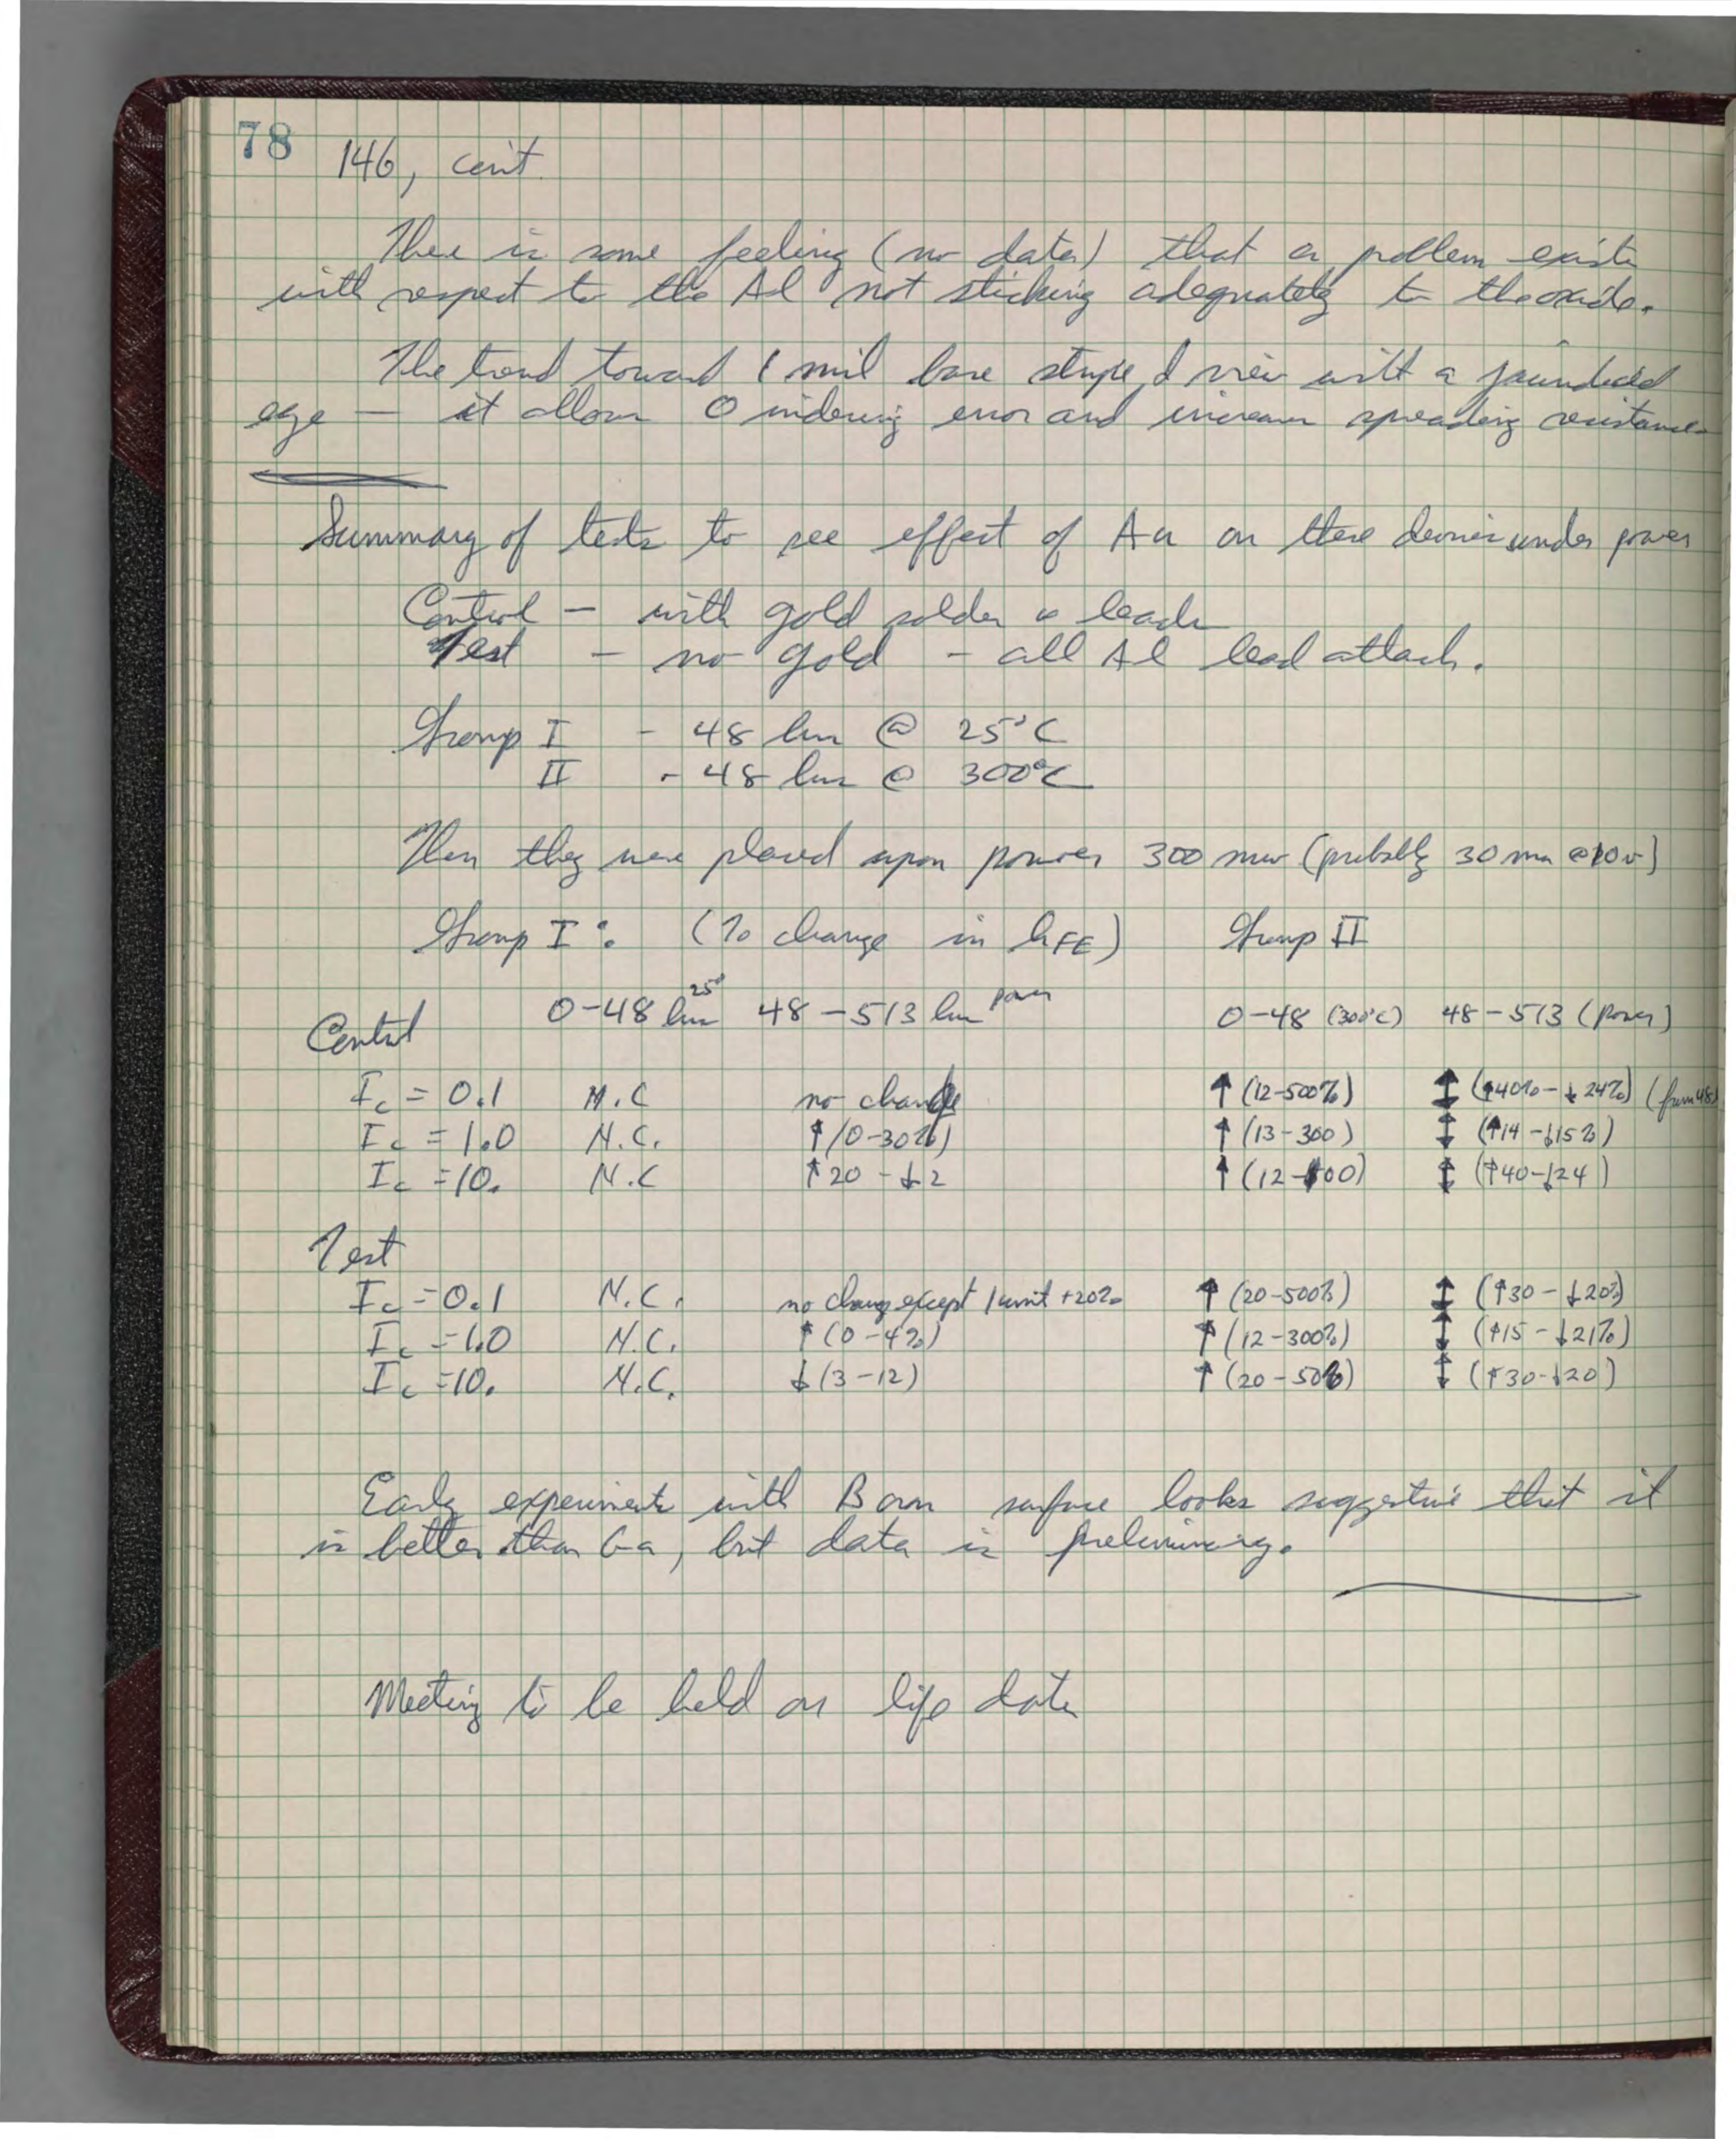 78
146, con't.
There is some feeling (no data) that a problem exists
with respect to the Al not sticking adequately to the oxide.
The trend toward 1 mil base stripe, I view with a jaundiced
eye — it allows 0 indexing error and increases spreading resistance.
Summary of tests to see effect of Au on these devices under power
Control — with gold solder & leads
Test — no gold — all Al lead attach.
Group I - 48 hrs @ 25°C
II - 48 hrs @ 300°C
Then they were placed upon power 300 mw (probably 30 ma @ 10 v)
Group I: (% change in hFE) Group II
0-48 hrs 25° 48-513 hrs power 0-48 (300°C) 48-513 (power)
Control
Ic = 0.1 N.C no change ↑ (12-500%) ↕ (↑40% - ↓24%) (from 48)
Ic = 1.0 N.C. ↑ (0-30%) ↑ (13-300) ↕ (↑14 - ↓15%)
Ic = 10. N.C ↑20 - ↓2 ↑ (12-100) ↕ (↑40-↓24)
Test
Ic = 0.1 N.C. no change except 1 unit +20% ↑ (20-500%) ↕ (↑30 - ↓20%)
Ic = 1.0 N.C. ↑ (0-4%) ↑ (12-300%) ↕ (↑15 - ↓21%)
Ic = 10. N.C. ↓ (3-12) ↑ (20-50%) ↕ (↑30-↓20)
Early experiments with Boron surface looks suggestive that it
is better than Ga, but data is preliminary.
Meeting to be held on life data